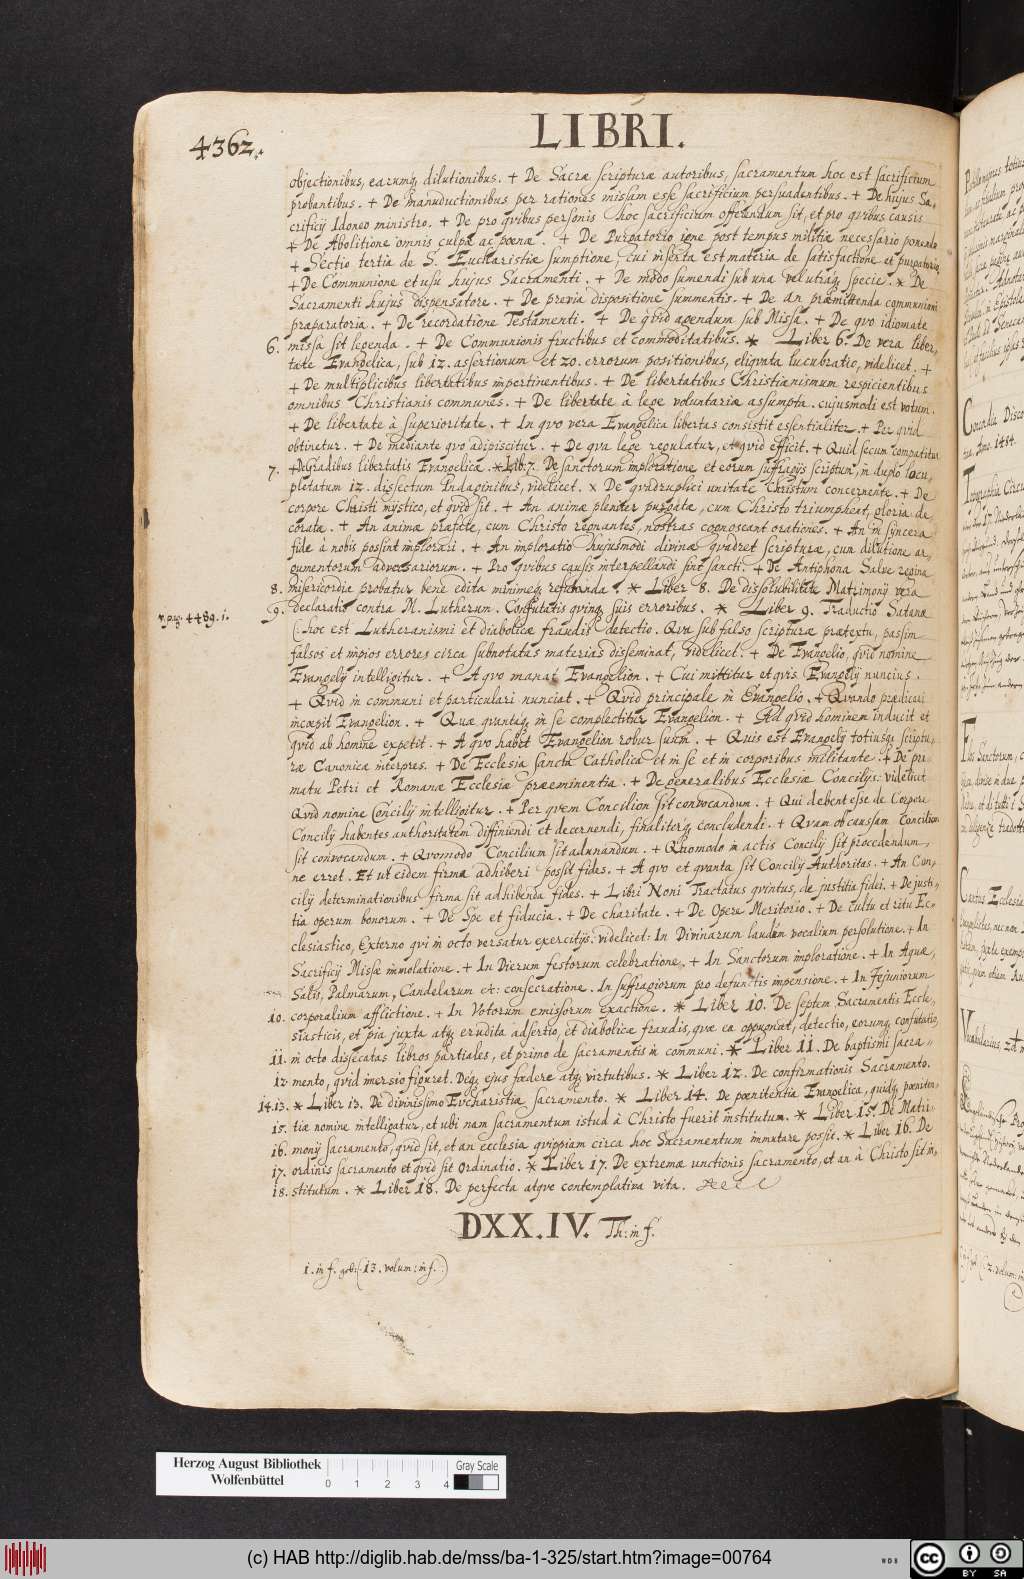 4362.
LIBRI.
objectionibus, earumq; dilutionibus. + De Sacræ scripturæ autoribus, sacramentum hoc est sacrificium
probantibus. + De manuductionibus per rationes missam esse sacrificium persuadentibus. + De hujus Sa,
crificij Idoneo ministro. + De pro qvibus personis hoc sacrificium offerendum sit, et pro qvibus causis
+ De Abolitione omnis culpæ ac poenæ. + De Purgatorio igne post tempus militiæ necessario ponendo
+ Sectio tertia de S. Eucharistiæ sumptione cui inserta est materia de satisfactione et purgatorio
+ De Communione et usu hujus Sacramenti. + De modo sumendi sub una vel utraq; specie. * De
Sacramenti hujus dispensatore. + De previa dispositione summentis. + De an præmittenda communioni
præparatoria. + De recordatione Testamenti. + De qvid agendum sub Missa. + De qvo idiomate
6. missa sit legenda. + De Communionis fructibus et commoditatibus. * Liber 6. De vera liber,
tate Evangelica, sub 12. assertionum et 20. errorum positionibus, eliqvata lucubratio, videlicet. +
+ De multiplicibus libertatibus impertinentibus. + De libertatibus Christianismum respicientibus
omnibus Christianis communes. + De libertate à lege voluntariæ assumpta. cujusmodi est votum.
+ De libertate à superioritate. + In qvo vera Evangelica libertas consistit essentialiter. + Per qvid
obtinetur. + De mediante qvo adipiscitur. + De qva lege regulatur, et qvid efficit. + Quid secum compatitur
7. + De gradibus libertatis Evangelicæ. * Lib: 7. De sanctorum imploratione et eorum suffragijs scriptum, in duplo locu,
pletatum 12. dissectum Indaginibus, videlicet. × De qvadruplici unitate Christum concernente. + De
corpore Christi mystico, et qvid sit. + An animæ pleniter purgatæ, cum Christo triumphent, gloria de,
corata. + An animæ præfatæ, cum Christo regnantes, nostras cognoscant orationes. + An in syncera
fide à nobis possint implorari. + An imploratio hujusmodi divinæ qvadret scripturæ, cum dilutione ar,
gumentorum adversariorum. + Pro qvibus causis interpellandi sint sancti. + De Antiphona Salve regina
8. misericordiæ probatur bene edita minimeq; refutanda. * Liber 8. De dissolubilitate Matrimonij vera
9. declaratio contra M. Lutherum. Confutatis qvinq; suis erroribus. * Liber 9. Traductio Satanæ
v. pag. 4489. i.
(: hoc est Lutheranismi et diabolicæ fraudis detectio. Qvæ sub falso scripturæ prætextu, passim
falsos et impios errores circa subnotatas materias disseminat, videlicet. + De Evangelio, qvid nomine
Evangelij intelligitur. + A qvo manat Evangelion. + Cui mittitur et qvis Evangelij nuncius.
+ Qvid in communi et particulari nunciat. + Qvid principale in Evangelio. + Qvando prædicari
incoepit Evangelion. + Quæ qvanteq; in se complectitur Evangelion. + Ad qvid hominem inducit et
qvid ab homine expetit. + A qvo habet Evangelion robur suum. + Quis est Evangelij totiusq; scriptu,
ræ Canonicæ interpres. + De Ecclesia sancta Catholica et in se et in corporibus militante. + De pri,
matu Petri et Romanæ Ecclesiæ præeminentia. + De generalibus Ecclesiæ Concilijs: videlicet
Qvid nomine Concilij intelligitur. + Per qvem Concilion sit convocandum. + Qui debent esse de Corpore
Concilij habentes authoritatem diffiniendi et decernendi, finaliterq; concludendi. + Qvam ob caussam Concilium
sit convocandum. + Qvomodo Concilium sit adunandum. + Quomodo in actis Concilij sit procedendum,
ne erret. Et ut eidem firmæ adhiberi possit fides. + A qvo et qvanta sit Concilij Authoritas. + An Con,
cilij determinationibus firma sit adhibenda fides. + Libri Noni Tractatus qvintus, de justitia fidei. + De justi,
tia operum bonorum. + De Spe et fiducia. + De charitate. + De Opere Meritorio. + De cultu et ritu Ec,
clesiastico, Externo qvi in octo versatur exercitijs: videlicet: In Divinarum laudum vocalium persolutione. + In
Sacrificij Missæ immolatione. + In Dierum festorum celebratione. + In Sanctorum imploratione. + In Aquæ,
Salis, Palmarum, Candelarum etc: consecratione. In suffragiorum pro defunctis impensione. + In Jejuniorum
10. corporalium afflictione. + In Votorum emissorum exactione. * Liber 10. De septem Sacramentis Eccle,
siasticis, et pia juxta atq; erudita adsertio, et diabolicæ fraudis, qvæ ea oppugnat, detectio, eorumq; confutatio,
11. in octo dissecatas libros partiales, et primo de sacramentis in communi. * Liber 11. De baptismi sacra,
12. mento, qvid imersio figuret. Deq; ejus foedere atq; virtutibus. * Liber 12. De confirmationis Sacramento.
14. 13. * Liber 13. De divinissimo Eucharistiæ sacramento. * Liber 14. De poenitentia Evangelica, quidq; poeniten,
15. tiæ nomine intelligatur, et ubi nam sacramentum istud à Christo fuerit institutum. * Liber 15. De Matri,
16. monij sacramento, qvid sit, et an ecclesia qvippiam circa hoc Sacramentum immutare possit. * Liber 16. De
17. ordinis sacramento et qvid sit Ordinatio. * Liber 17. De extremæ unctionis sacramento, et an à Christo sit in,
18. stitutum. * Liber 18. De perfecta atqve contemplativa vita.
DXX.IV. Th: in f.
1. in f. geb: (13. volum: in f.)
Herzog August Bibliothek
Wolfenbüttel
0 1 2 3 4
Gray Scale
(c) HAB http://diglib.hab.de/mss/ba-1-325/start.htm?image=00764
WDB
cc BY SA